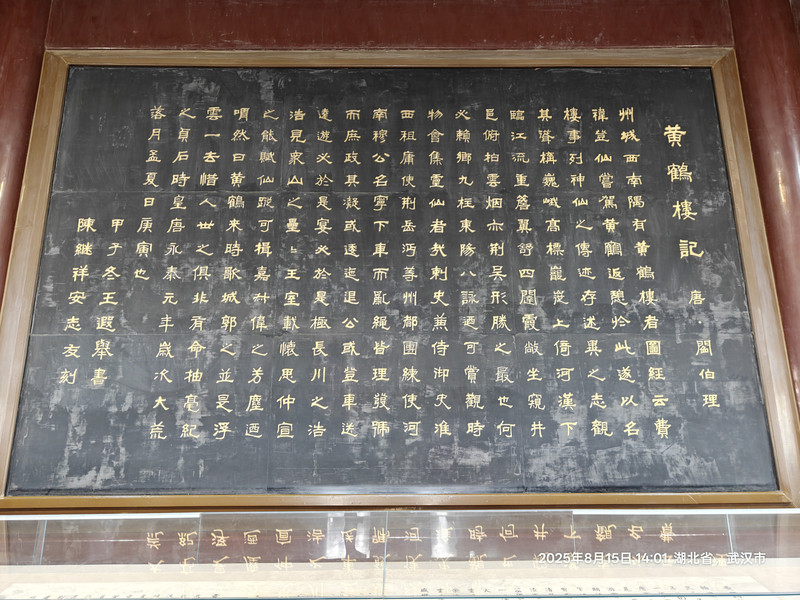 黄鶴樓記
唐·閻伯理
州城西南隅有黄鶴樓者圖經云費
禕登仙嘗駕黄鶴返憩於此遂以名
樓事列神仙之傳迹存述異之志觀
其聳構巍峨高標巃嵸上倚河漢下
臨江流重簷翼舒四闥霞敞坐窺井
邑俯拍雲烟亦荆吴形勝之最也何
必賴鄉九柱東陽八詠迺可賞觀時
物會集靈仙者哉刺史兼侍御史淮
西租庸使荆岳沔等州都團練使河
南穆公名寧下車而亂繩皆理發號
而庶政其凝或逶迤退公或登車送
遠遊必於是宴必於是極長川之浩
浩見衆山之壘〻王室載懷思仲宣
之能賦仙蹤可揖嘉叔偉之芳塵迺
喟然曰黄鶴来時歌城郭之並是浮
雲一去惜人世之俱非有命抽毫紀
之貞石時皇唐永泰元年歲次大荒
落月孟夏日庚寅也
甲子冬王遐舉書
陳継祥安志友刻
2025年8月15日 14:01 湖北省·武汉市